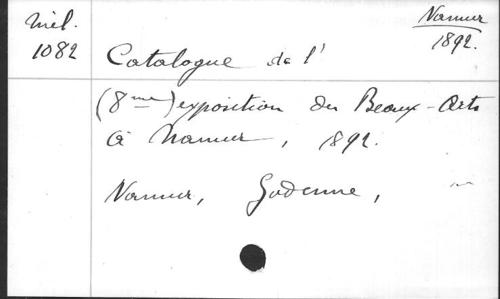 Mél.
1082
Namur
1892.
Catalogue de l'
(8me) exposition des Beaux-Arts
à Namur, 1892.
Namur, Godenne,